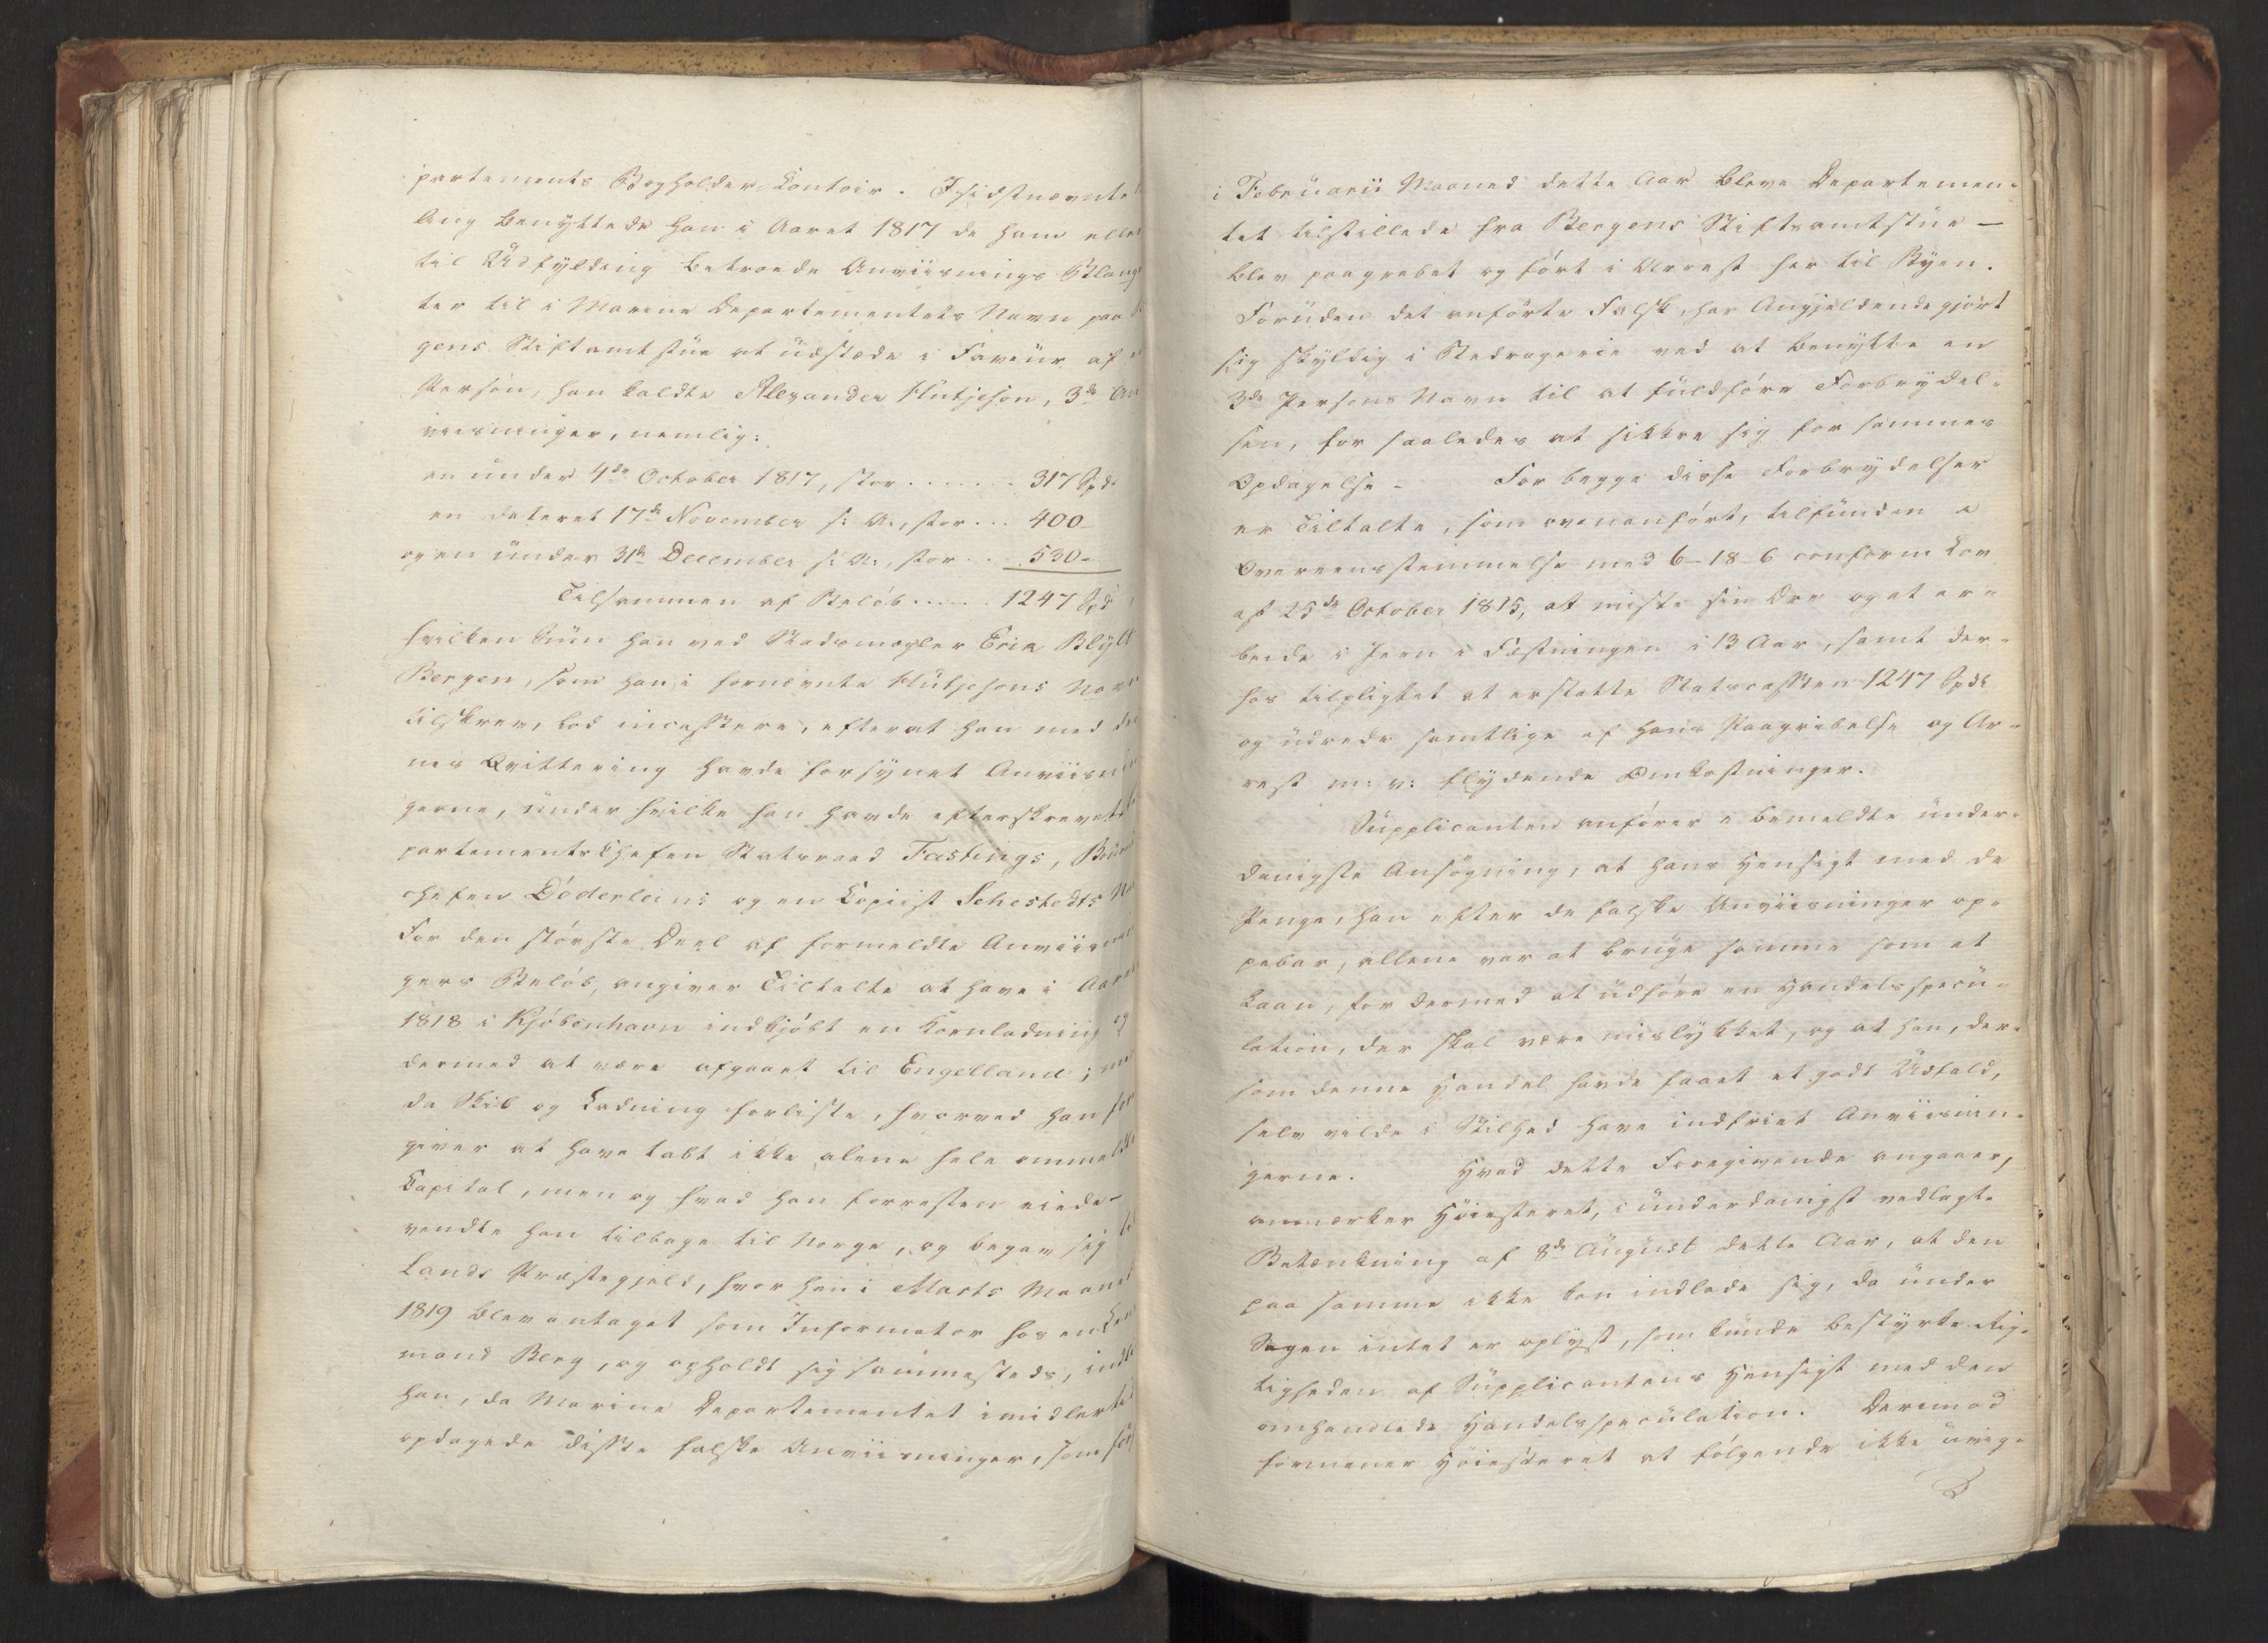 partements Bogholder-Contoir. I sidstnævnte
ling benyttede han i Aaret 1817 de ham eller
til Udfylding betroede Anviisnings Blanqv
ter til i Marine Departementets Navn paa
gens Stiftamtstue at udstæde i Faveur af
Person, han kaldte Alexander Hutjeson, 3de An
viisninger, nemlig:
en under 4de October 1817, stor . . . . . . 317 Spd.
en dateret 17de November s: A:, stor . . . 400 –
og en under 31te December s: A:, stor . . . 530 –
Tilsammen af Beløb . . . . . 1247 Spd.
hvilken Sum han ved Stadsmægler Eric Blÿtt
Bergen, som han i fornævnte Hutjesons Navn
tilskrev, lod incassere, efterat han med
nes Qvittering havde forsynet Anviisnin
gerne, under hvilke han havde efterskrevet
partementschefen Statsraad Fastings, Bureau
chefen Döderleins og en Copiist Schestedts
For den største Deel af formeldte Anviisnin
gers Beløb, angiver Tiltalte at have i Aaret
1818 i Kjøbenhavn indkjøbt en Kornladning og
dermed at være afgaaet til Engelland; men
da Skib og Ladning forliste, hvorved han fore
giver at have tabt ikke alene hele ommeldte
Capital, men og hvad han forresten eiede –
vendte han tilbage til Norge, og begav sig til
Lands Præstegjeld, hvor han i Marts Maaned
1819 blev antaget som Informator hos en Lens
mand Berg, og opholdt sig sammesteds, indtil
han, da Marine Departementet imidlertid
opdagede disse falske Anviisninger, som først
i Februarii Maaned dette Aar bleve Departemen-
tet tilstillede fra Bergens Stiftsamtstue –
blev paagrebet og ført i Arrest her til Byen.
Foruden det anførte Falsk, har Angjeldende gjort
sig skyldig i Bedragerie ved at benytte en
3die Persons Navn til at fuldføre Forbrydel-
sen, for saaledes at sikkre sig for sammes
Opdagelse – For begge disse Forbrydelser
er Tiltalte, som ovenanført, tilfunden i
Overeensstemmelse med 6–18–6 conform Lov
af 25de October 1815, at miste sin Ære og at ar-
beide i Jern i Fæstningen i 13 Aar, samt der-
hos tilpligtet at erstatte Statscassen 1247 Spdl
og udrede samtlige af hans Paagribelse og Ar-
rest m: v: flydende Omkostninger.
Supplicanten anfører i bemeldte under-
danigste Ansøgning, at hans Hensigt med de
Penge, han efter de falske Anviisninger op-
pebar, allene var at bruge samme som et
Laan, for dermed at udføre en Handelsspecu-
lation, der skal være mislykket, og at han, der-
som denne Handel havde faaet et godt Udfald,
selv vilde i Stilhed have indfriet Anviisnin-
gerne. Hvad dette Foregivende angaaer,
anmærker Høiesteret, i underdanigst vedlagte
Betænkning af 8de August dette Aar, at den
paa samme ikke kan indlade sig, da under
Sagen intet er oplyst, som kunde bestyrke Rig-
tigheden af Supplicantens Hensigt med den
omhandlede Handelsspeculation. Derimod
formener Høiesteret at følgende ikke uvig-